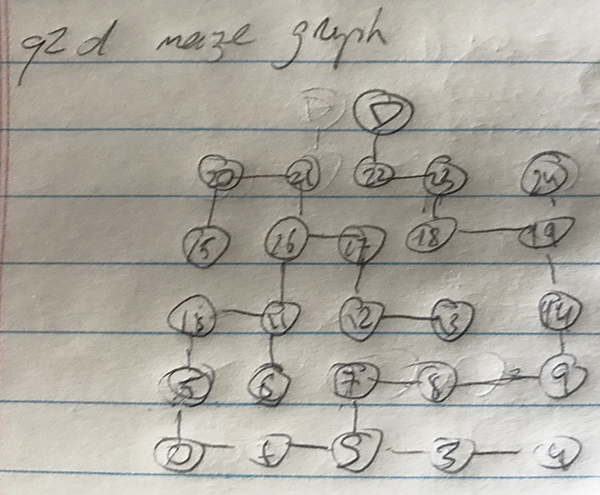 q2 d maze graph
D D
20 21 22 23 24
15 16 17 18 19
10 11 12 13 14
5 6 7 8 9
0 1 S 3 4